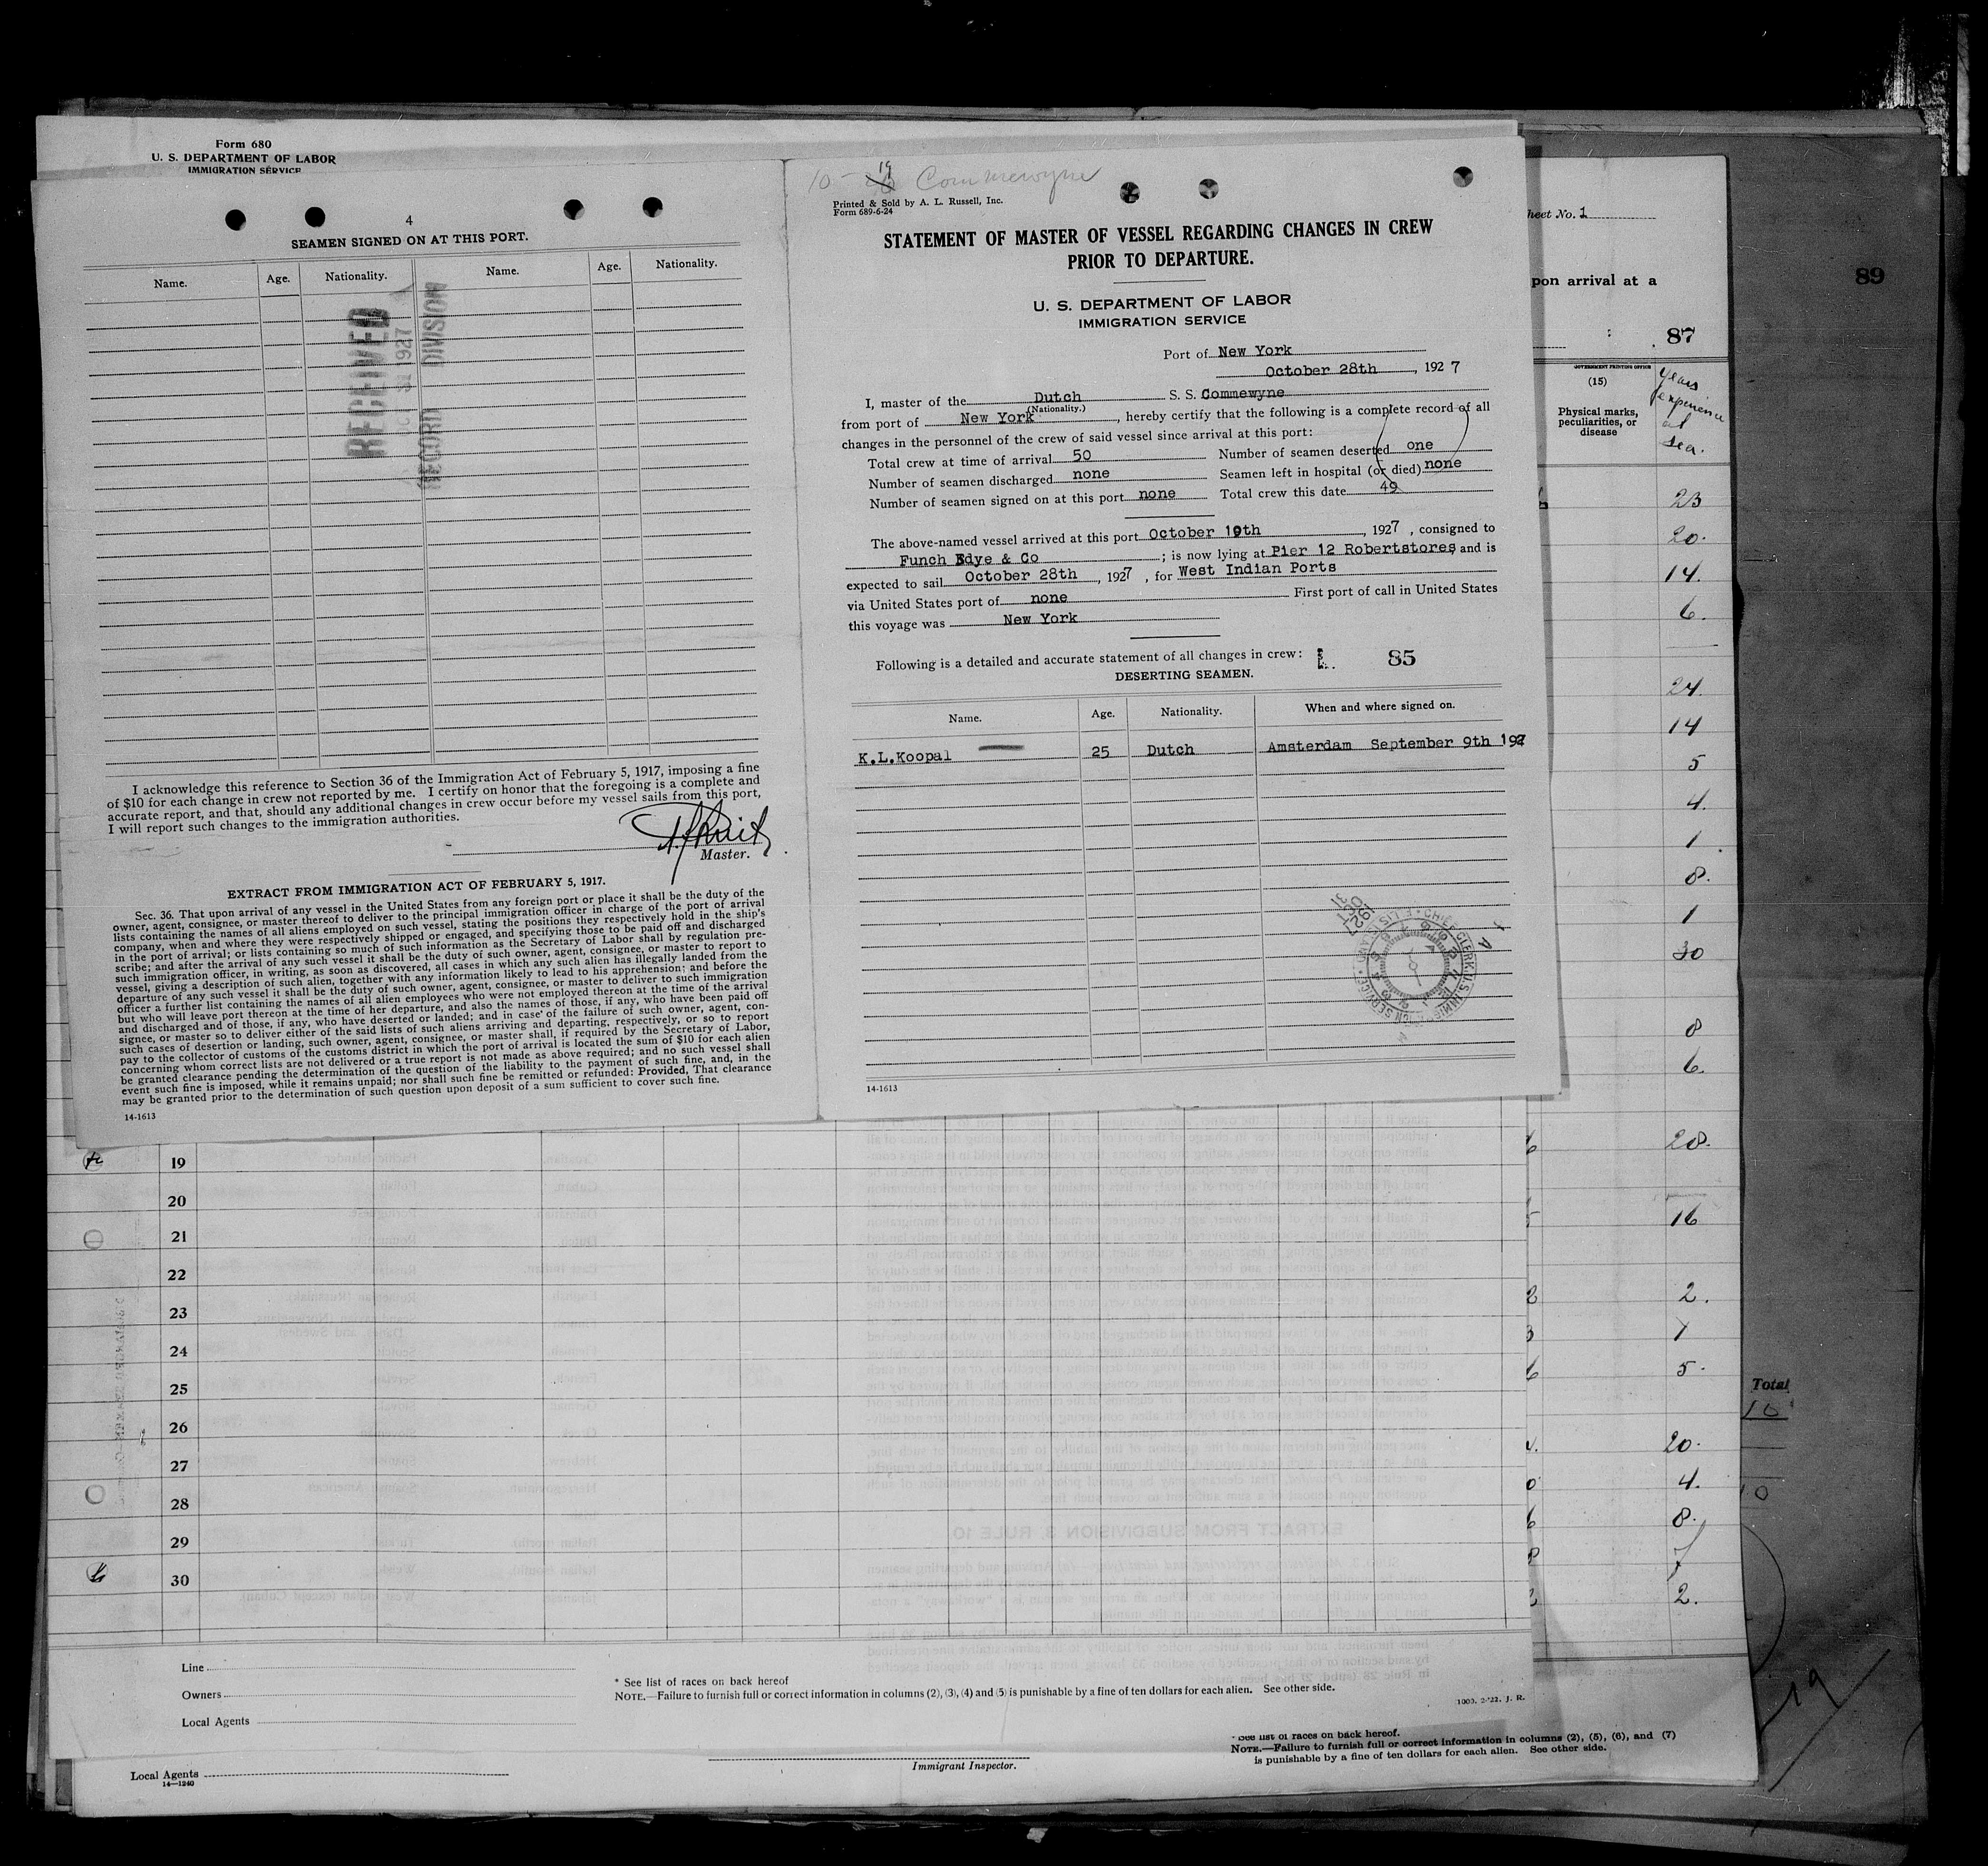 Form 680
U. S. DEPARTMENT OF LABOR
IMMIGRATION SERVICE
4
SEAMEN SIGNED ON AT THIS PORT.
Name. Age. Nationality. Name. Age. Nationality.
RECEIVED
OCT 31 1927
RECORD DIVISION
I acknowledge this reference to Section 36 of the Immigration Act of February 5, 1917, imposing a fine
of $10 for each change in crew not reported by me. I certify on honor that the foregoing is a complete and
accurate report, and that, should any additional changes in crew occur before my vessel sails from this port,
I will report such changes to the immigration authorities.
Master.
EXTRACT FROM IMMIGRATION ACT OF FEBRUARY 5, 1917.
Sec. 36. That upon arrival of any vessel in the United States from any foreign port or place it shall be the duty of the
owner, agent, consignee, or master thereof to deliver to the principal immigration officer in charge of the port of arrival
lists containing the names of all aliens employed on such vessel, stating the positions they respectively hold in the ship's
company, when and where they were respectively shipped or engaged, and specifying those to be paid off and discharged
in the port of arrival; or lists containing so much of such information as the Secretary of Labor shall by regulation pre-
scribe; and after the arrival of any such vessel it shall be the duty of such owner, agent, consignee, or master to report to
such immigration officer, in writing, as soon as discovered, all cases in which any such alien has illegally landed from the
vessel, giving a description of such alien, together with any information likely to lead to his apprehension; and before the
departure of any such vessel it shall be the duty of such owner, agent, consignee, or master to deliver to such immigration
officer a further list containing the names of all alien employees who were not employed thereon at the time of the arrival
but who will leave port thereon at the time of her departure, and also the names of those, if any, who have been paid off
and discharged and of those, if any, who have deserted or landed; and in case of the failure of such owner, agent, con-
signee, or master so to deliver either of the said lists of such aliens arriving and departing, respectively, or so to report
such cases of desertion or landing, such owner, agent, consignee, or master shall, if required by the Secretary of Labor,
pay to the collector of customs of the customs district in which the port of arrival is located the sum of $10 for each alien
concerning whom correct lists are not delivered or a true report is not made as above required; and no such vessel shall
be granted clearance pending the determination of the question of the liability to the payment of such fine, and, in the
event such fine is imposed, while it remains unpaid; nor shall such fine be remitted or refunded: Provided, That clearance
may be granted prior to the determination of such question upon deposit of a sum sufficient to cover such fine.
14-1613
10 - 19 Commewyne
Printed & Sold by A. L. Russell, Inc.
Form 689-6-24
STATEMENT OF MASTER OF VESSEL REGARDING CHANGES IN CREW
PRIOR TO DEPARTURE.
U. S. DEPARTMENT OF LABOR
IMMIGRATION SERVICE
Port of New York
October 28th, 1927
I, master of the Dutch S. S. Commewyne
(Nationality.)
from port of New York, hereby certify that the following is a complete record of all
changes in the personnel of the crew of said vessel since arrival at this port:
Total crew at time of arrival 50 Number of seamen deserted one
Number of seamen discharged none Seamen left in hospital (or died) none
Number of seamen signed on at this port none Total crew this date 49
The above-named vessel arrived at this port October 19th, 1927, consigned to
Funch Edye & Co; is now lying at Pier 12 Robertstores and is
expected to sail October 28th, 1927, for West Indian Ports
via United States port of none First port of call in United States
this voyage was New York
Following is a detailed and accurate statement of all changes in crew: 85
DESERTING SEAMEN.
Name. Age. Nationality. When and where signed on.
K.L.Koopal 25 Dutch Amsterdam September 9th 192
14-1613
heet No. 1
pon arrival at a
87
89
GOVERNMENT PRINTING OFFICE
(15)
Physical marks,
peculiarities, or
disease
years
experience
at
sea.
23
20.
14.
6.
24.
14
5
4.
1
8.
1
30
8
6.
20.
16
2.
1
5.
20.
4.
8.
7
2.
Total
10
19
19
20
21
22
23
24
25
26
27
28
29
30
Line
Owners
Local Agents
* See list of races on back hereof
NOTE.—Failure to furnish full or correct information in columns (2), (3), (4) and (5) is punishable by a fine of ten dollars for each alien. See other side.
Local Agents
14—1240
Immigrant Inspector.
* See list of races on back hereof.
NOTE.—Failure to furnish full or correct information in columns (2), (5), (6), and (7)
is punishable by a fine of ten dollars for each alien. See other side.